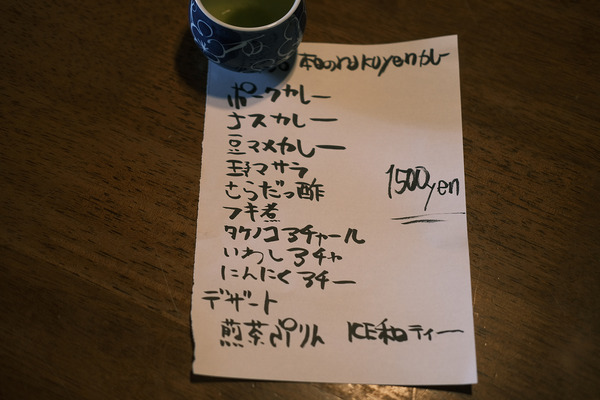 本日のrakuyenカレー
ポークカレー
ナスカレー
豆マメカレー
玉子マサラ
さらだっ酢
フキ煮
1500yen
タケノコアチャール
いわしアチャ
にんにくアチー
デザート
煎茶ぷりん ICE和ティー